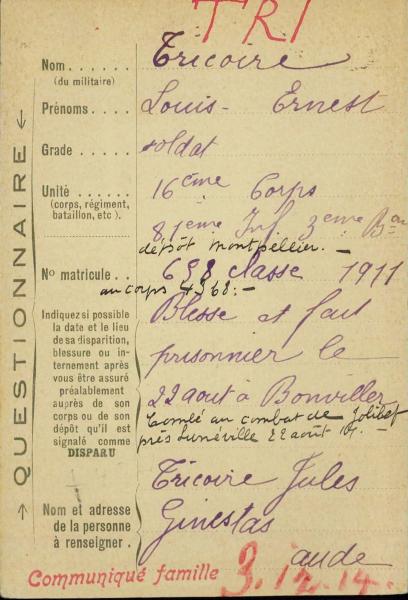 TRI
Nom . . . . . Tricoire
(du militaire)
Prénoms . . . . Louis - Ernest
Grade . . . . . soldat
Unité . . . . . . 16ème Corps
(corps, régiment,
bataillon, etc.). 81eme Inf. 3eme Bon
dépôt Montpellier. -
No matricule . . 658 classe 1911
au corps 4368: -
Indiquez si possible
la date et le lieu
de sa disparition,
blessure ou in-
ternement après
vous être assuré
préalablement
auprès de son
corps ou de son
dépôt qu'il est
signalé comme
DISPARU
Blesse et fait
prisonnier le
22 aout à Bonviller
Tombé au combat de
près Lunéville 22 août
Nom et adresse
de la personne
à renseigner.
Tricoire Jules
Ginestas
aude
Communiqué famille 3.12.14.
← QUESTIONNAIRE →